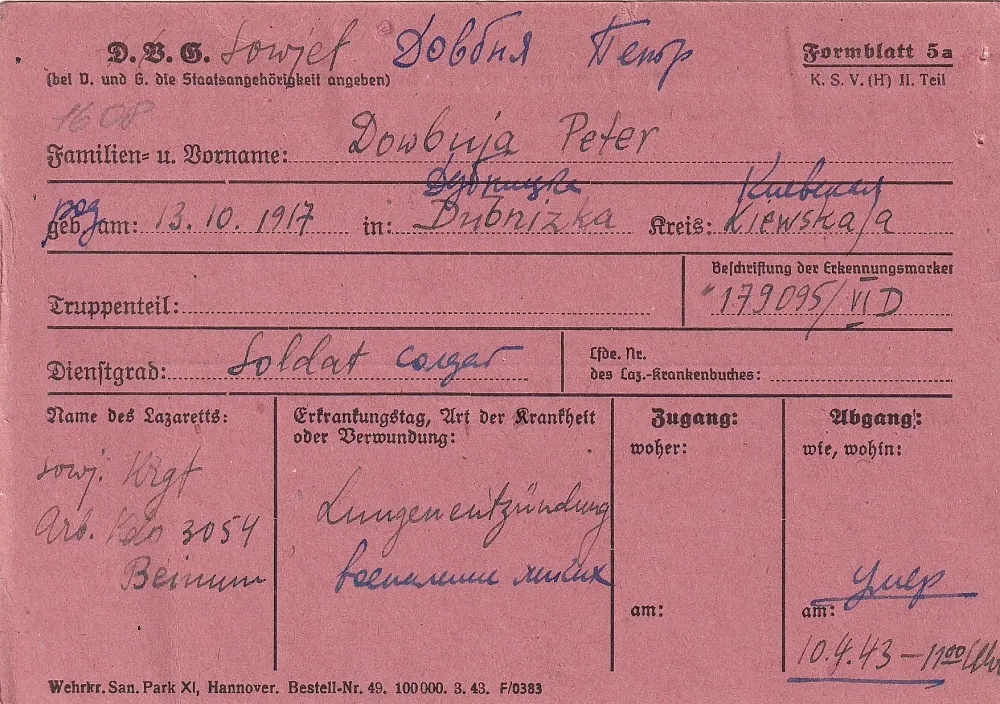 D. V. G. Sowjet Довбня Петр Formblatt 5a
(bei V. und G. die Staatsangehörigkeit angeben) K. S. V. (H) II. Teil
1608
Familien- u. Vorname: Dowbnja Peter
Дубницка Киевская
род
geb. am: 13. 10. 1917 in: Dubnizka Kreis: Kiewskaja
Beschriftung der Erkennungsmarke:
Truppenteil: 179095/VI D
Dienstgrad: Soldat солдат
Lfde. Nr.
des Laz.-Krankenbuches:
Name des Lazaretts: Erkrankungstag, Art der Krankheit Zugang: Abgang:
oder Verwundung: woher: wie, wohin:
sowj. Krgf
Arb. Kdo 3054 Lungenentzündung
Beinum воспаление легких умер
am: am:
10.4.43 – 17⁰⁰ Uhr
Wehrkr. San. Park XI, Hannover. Bestell-Nr. 49. 100000. 3. 43. F/0383